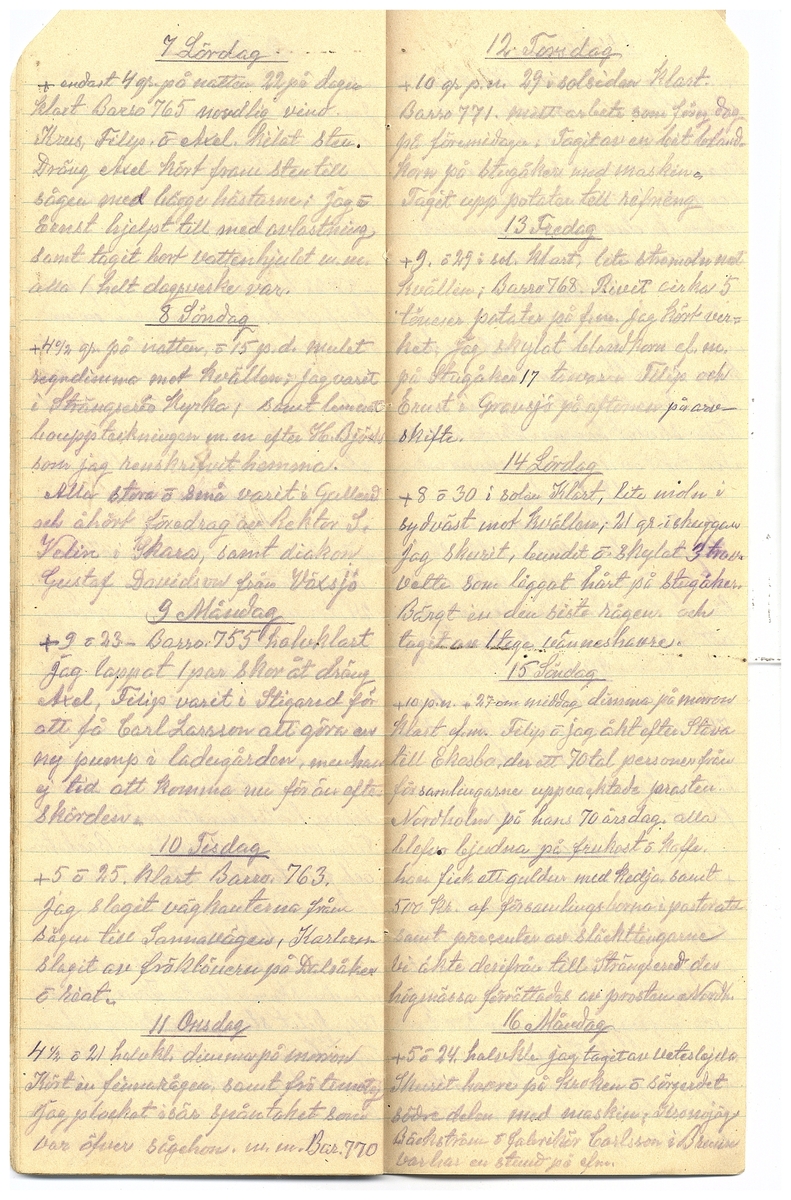 7 Lördag
+ endast 4 gr. på natten 22 på dagen
klart Barro 765 nordlig vind.
Filip. ö Axel. kilat sten.
Dräng Axel kört fram sten till
sågen med bägge hästarne; jag ö
Ernst hjelpt till med avlastning
samt tagit bort vattenhjulet m.m.
alla 1 helt dagsverke var.
8 Söndag
+4½ gr. på natten, ö 15 p.d. mulet
regndimma mot kvällen; jag varit
i Strängsereds Kyrka; samt
bouppteckningen m.m efter H. Björk
som jag renskrifvit hemma.
Alla stora ö små varit i Gallered
och åhört föredrag av Rektor S.
Velin i Skara, samt diakon
Gustaf Davidson från Växsjö
9 Måndag
+9 ö 23 - Barro. 755 halvklart
jag lappat 1 par skor åt dräng
Axel, Filip varit i Stigared för
att få Carl Larsson att göra en
ny pump i ladugården, men han
ej tid att komma nu för än efter
skörden.
10 Tisdag
+5 ö 25. klart Barro. 763.
jag slagit vägkanterna från
sågen till Sannavägen, Karlsson
slagit av fröklövern på Dalsåker
ö reat.
11 Onsdag
4½ ö 21 halvkl. dimma på morron
Kört in finnrågen, samt frö timotej
Jag plockat isär spåntaket som
var öfver sågehon. m.m. Bar. 770
12 Torsdag
+10 gr. p.n. 29 i solsidan klart.
Barro 771. mitt arbete som föreg. dag
på förmidagen; Tagit av en bit bland-
korn på stegåker med maskin.
Tagit upp potatar till rifning
13 Fredag
+9. ö 29 i sol. klart, lite strömoln mot
kvällen; Barro 768. Rivit cirka 5
tönner potater på f.m. jag kört ver=
ket. jag skylat blandkorn ef.m.
på Stegåker 17 travar Filip och
Ernst i Grovsjö på aftonen på arv-
skifte.
14 Lördag
+8 ö 30 i solen Klart, lite moln i
sydväst mot kvällen; 21 gr. i skuggan
jag skurit, bundet ö skylat 3 trav.
vette som läggat hårt på stegåker.
Bärgt in den siste rågen. och
taget av 1 tege vänneshavre.
15 Söndag
+10 p.n. +27 om middag dimma på morron
klart ef.m. Filip ö jag åkt efter Stava
till Ekesbo, der ett 70 tal personer från
församlingarne uppvaktade prosten
Nordholm på hans 70 årsdag. alla
blefvo bjudna på frukost ö kaffe.
han fick ett guldur med kedja samt
500 Kr. af församlingsborna i pastoratet
samt presenter av släcktingarne
vi åkte derifrån till Strängsered der
högmässa förrättades av prosten Nordh.
16 Måndag
+5 ö 24. halvkla. jag taget av
Skurit havre på kroken ö
södre delen med maskin; Kronojäg.
Bäckström ö fabrikör Carlsson i Brunn
var har en stund på efm.